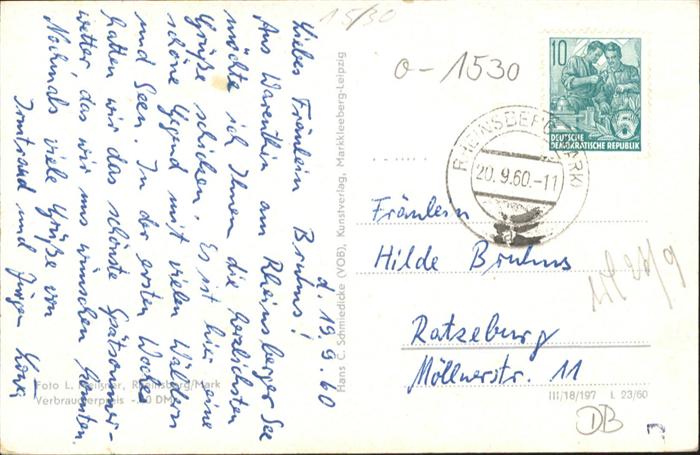 d. 19.9.60
Liebes Fräulein Bruhns!
Aus Warenthin am Rheinsberger See
möchte ich Ihnen die herzlichsten
Grüße schicken. Es ist hier eine
schöne Gegend mit vielen Wäldern
und Seen. In der ersten Woche
hatten wir das schönste Spätsommer-
wetter, das wir uns wünschen konnten.
Nochmals viele Grüße von
Irmtraud und Jürgen
Foto L. Rheinsberg/Mark
Verbraucherpreis DM
Hans C. Schmiedicke (VOB), Kunstverlag, Markkleeberg-Leipzig
15/30
0-1530
10
DEUTSCHE
DEMOKRATISCHE REPUBLIK
5
RHEINSBERG (MARK)
20.9.60.-11
Fräulein
Hilde Bruhns
Ratzeburg
Möllnerstr. 11
III/18/197 L 23/60
DB